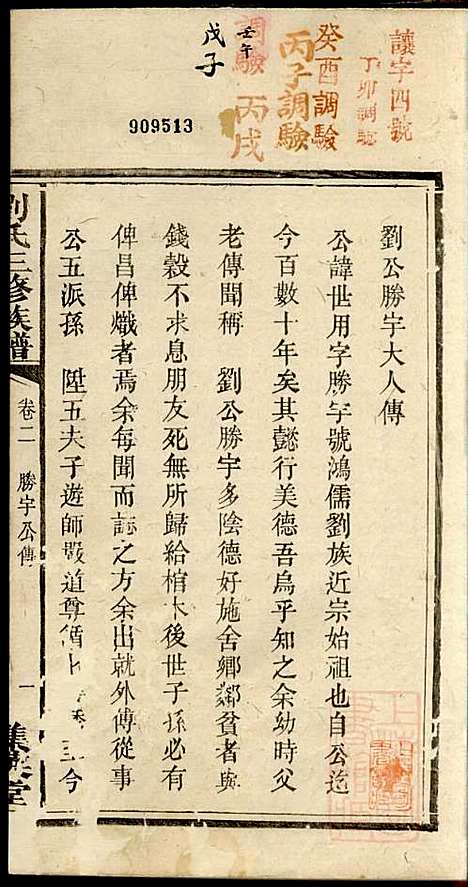 讓字四號
丁卯調驗
癸酉調驗
丙子調驗
調驗
丙戌
壬午
戊子
909513
劉公勝宇大人傳
公諱世用字勝宇號鴻儒劉族近宗始祖也自公迄
今百數十年矣其懿行美德吾烏乎知之余幼時父
老傳聞稱 劉公勝宇多陰德好施舍鄉鄰貧者與
錢穀不求息朋友死無所歸給棺木後世子孫必有
俾昌俾熾者焉余每聞而誌之方余出就外傅從事
公五派孫 陞五夫子遊師嚴道尊循 今
劉氏三修族譜
卷二 勝宇公傳
一
堂